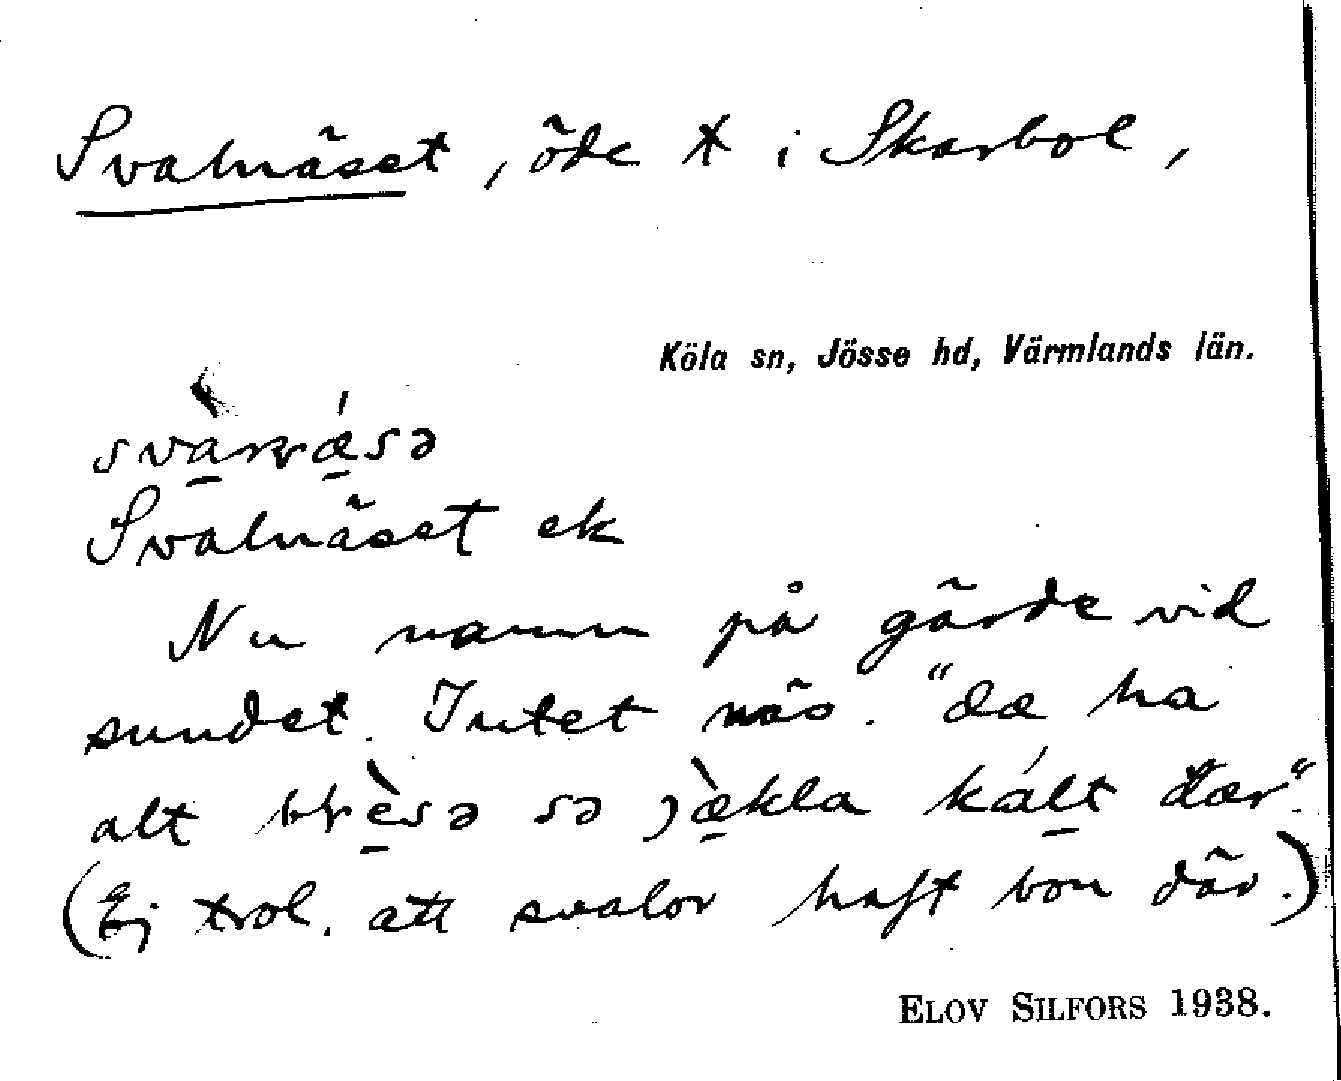 Svalnäset, öde t i Skarbol,
Köla sn, Jösse hd, Värmlands län.
Svalnäset ek
Nu namn på gärde vid
sundet. Intet näs. "dæ ha
alt blèsə sə jæ̀kla kált dær".
(Ej trol. att svalor haft bon där.)
ELOV SILFORS 1938.